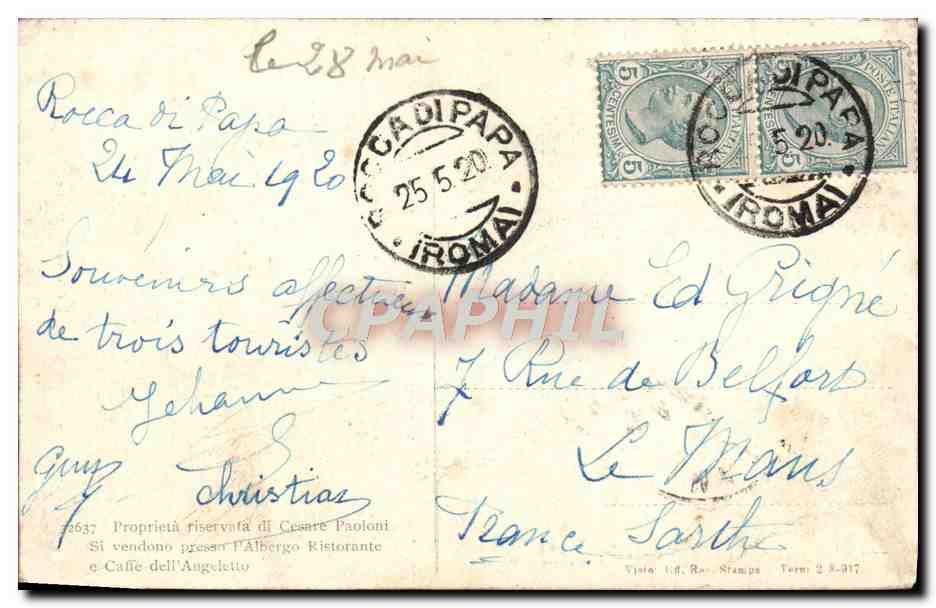 le 28 mai
Rocca di Papa
24 Mai 1920
Souvenirs affectueux
de trois touristes
Jehanne
Guy
Christian
ROCCA DI PAPA
25.5.20.
(ROMA)
5 CENTESIMI
POSTE ITALIANE
5
ROCCA DI PAPA
5.20.
(ROMA)
Madame Ed Grigné
7 Rue de Belfort
Le Mans
France Sarthe
CPAPHIL
72637 Proprietà riservata di Cesare Paoloni
Si vendono presso l'Albergo Ristorante
e Caffè dell'Angeletto
Visto: Uff. Rev. Stampa Terni 2-8-917